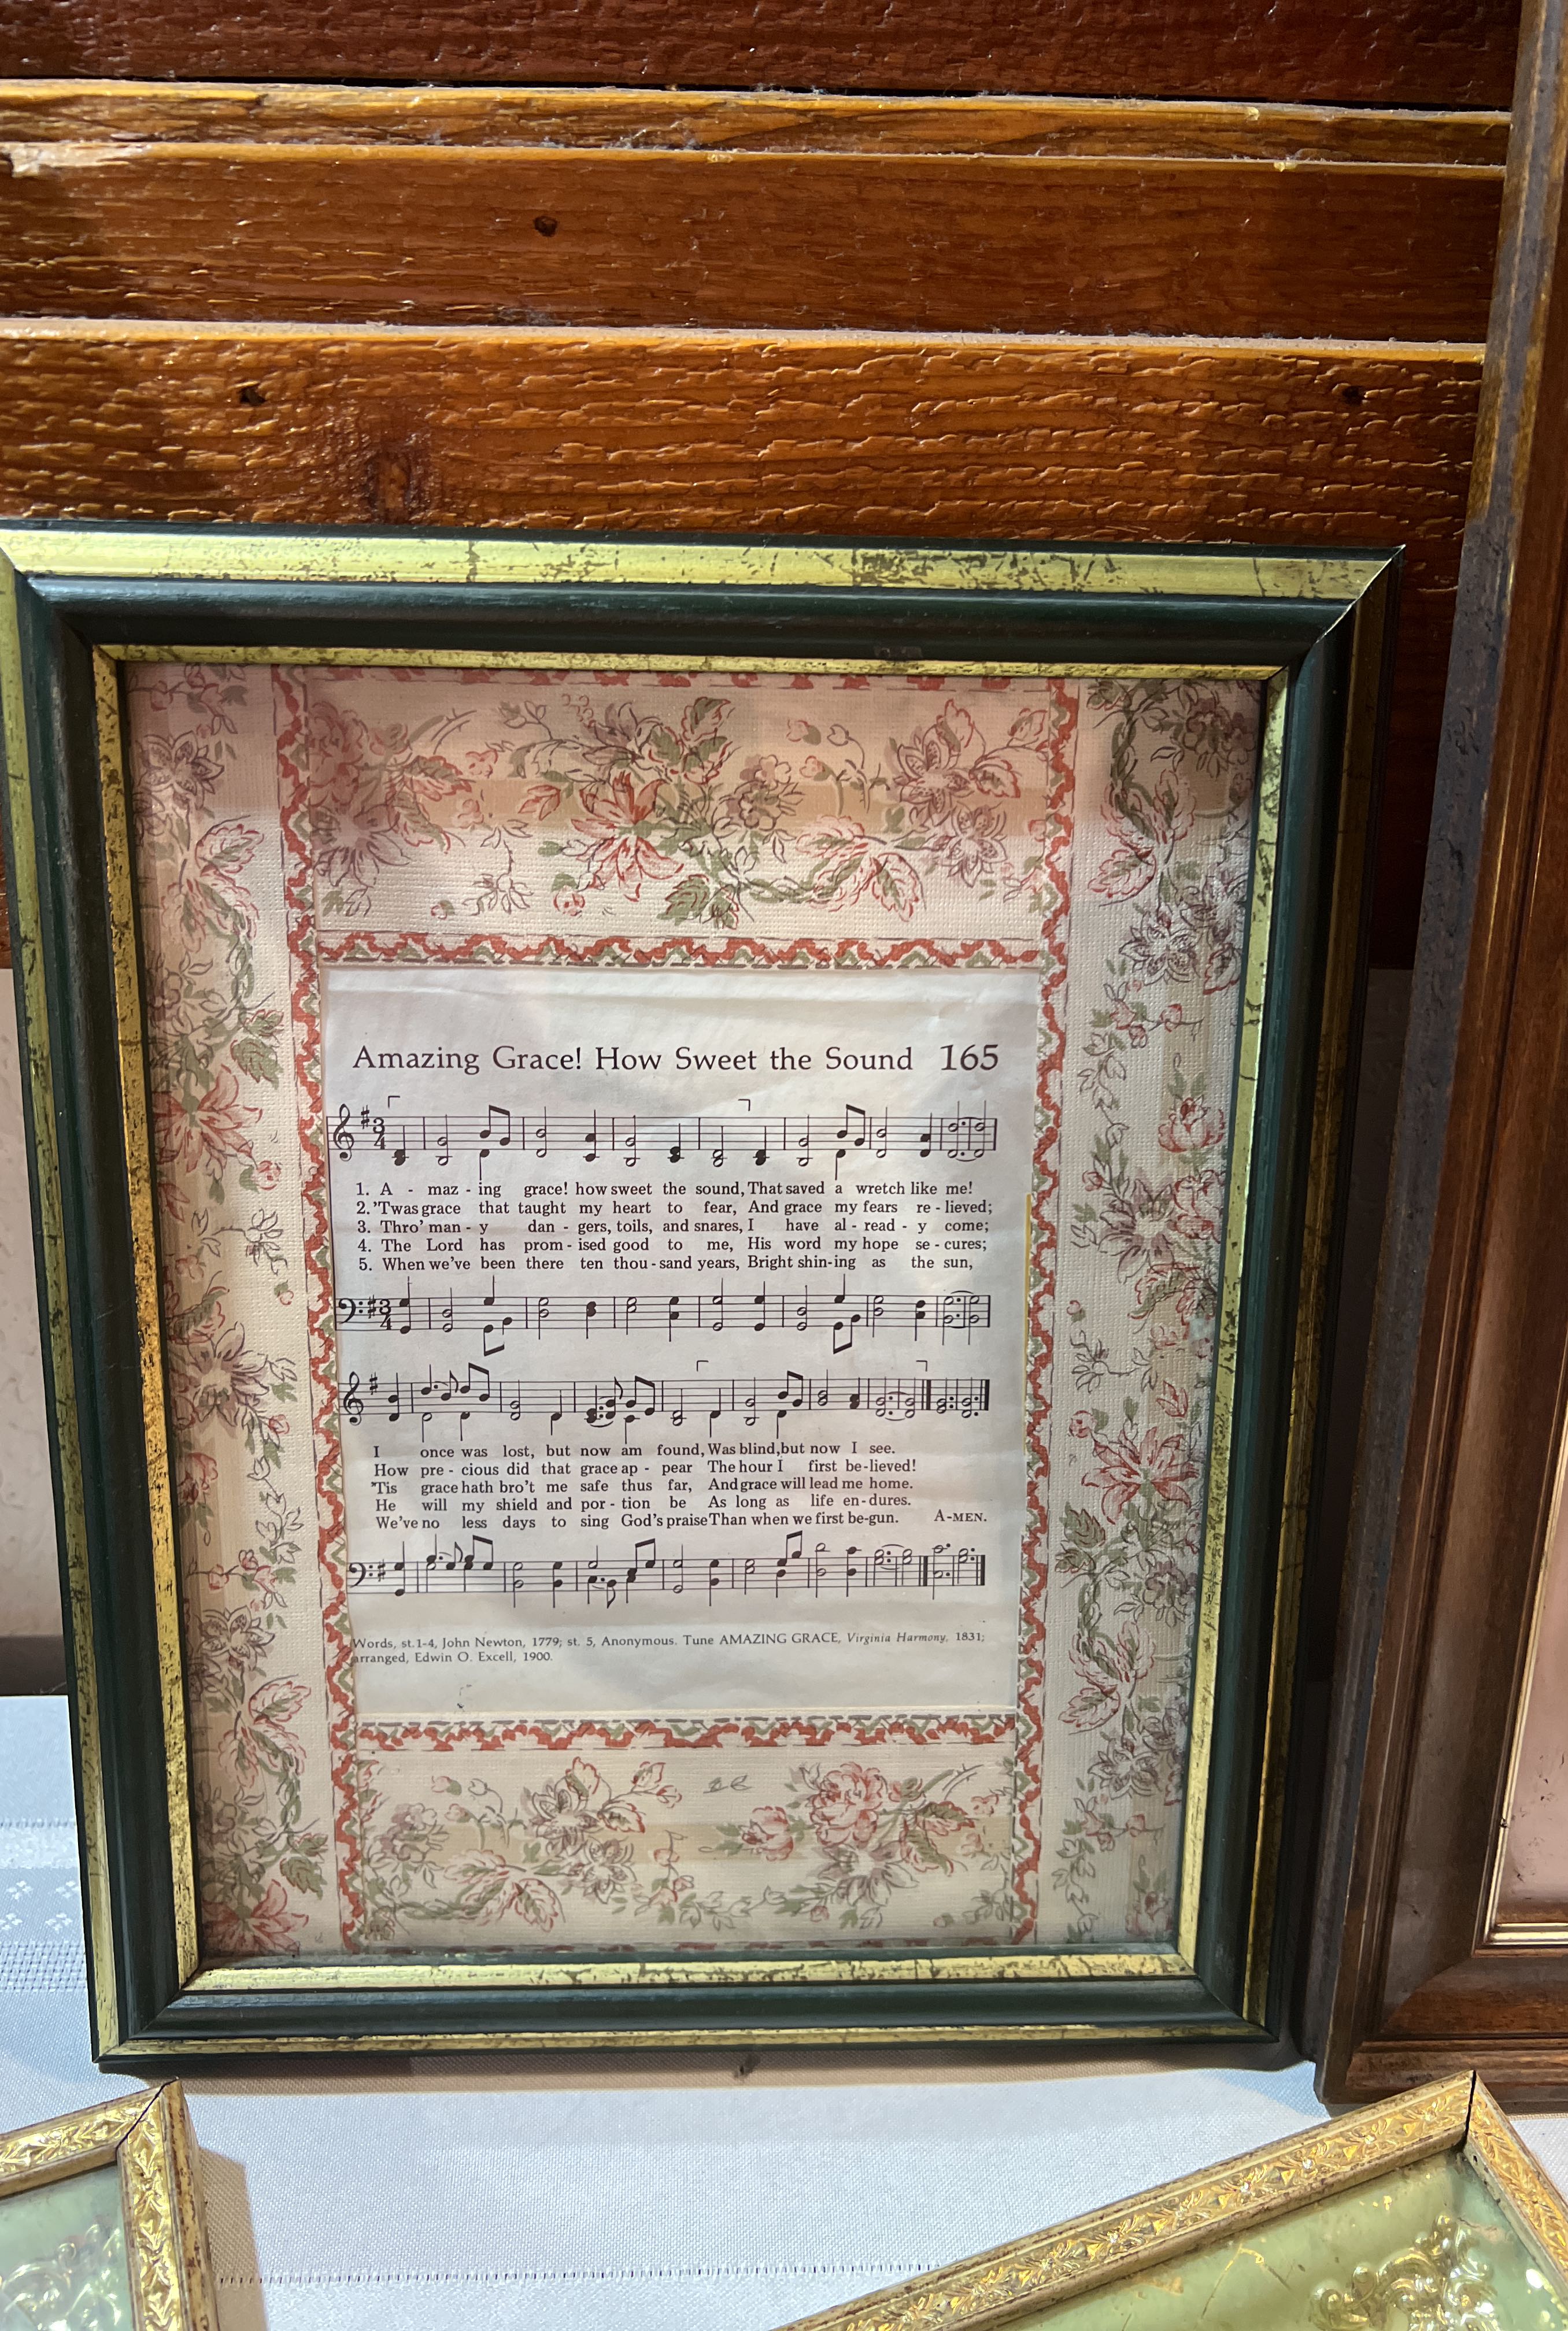 Amazing Grace! How Sweet the Sound 165
3
4
1. A - maz - ing grace! how sweet the sound, That saved a wretch like me!
2. 'Twas grace that taught my heart to fear, And grace my fears re - lieved;
3. Thro' man - y dan - gers, toils, and snares, I have al - read - y come;
4. The Lord has prom - ised good to me, His word my hope se - cures;
5. When we've been there ten thou - sand years, Bright shin - ing as the sun,
3
4
I once was lost, but now am found, Was blind, but now I see.
How pre - cious did that grace ap - pear The hour I first be - lieved!
'Tis grace hath bro't me safe thus far, And grace will lead me home.
He will my shield and por - tion be As long as life en - dures.
We've no less days to sing God's praise Than when we first be - gun. A - MEN.
Words, st.1-4, John Newton, 1779; st. 5, Anonymous. Tune AMAZING GRACE, Virginia Harmony, 1831;
arranged, Edwin O. Excell, 1900.